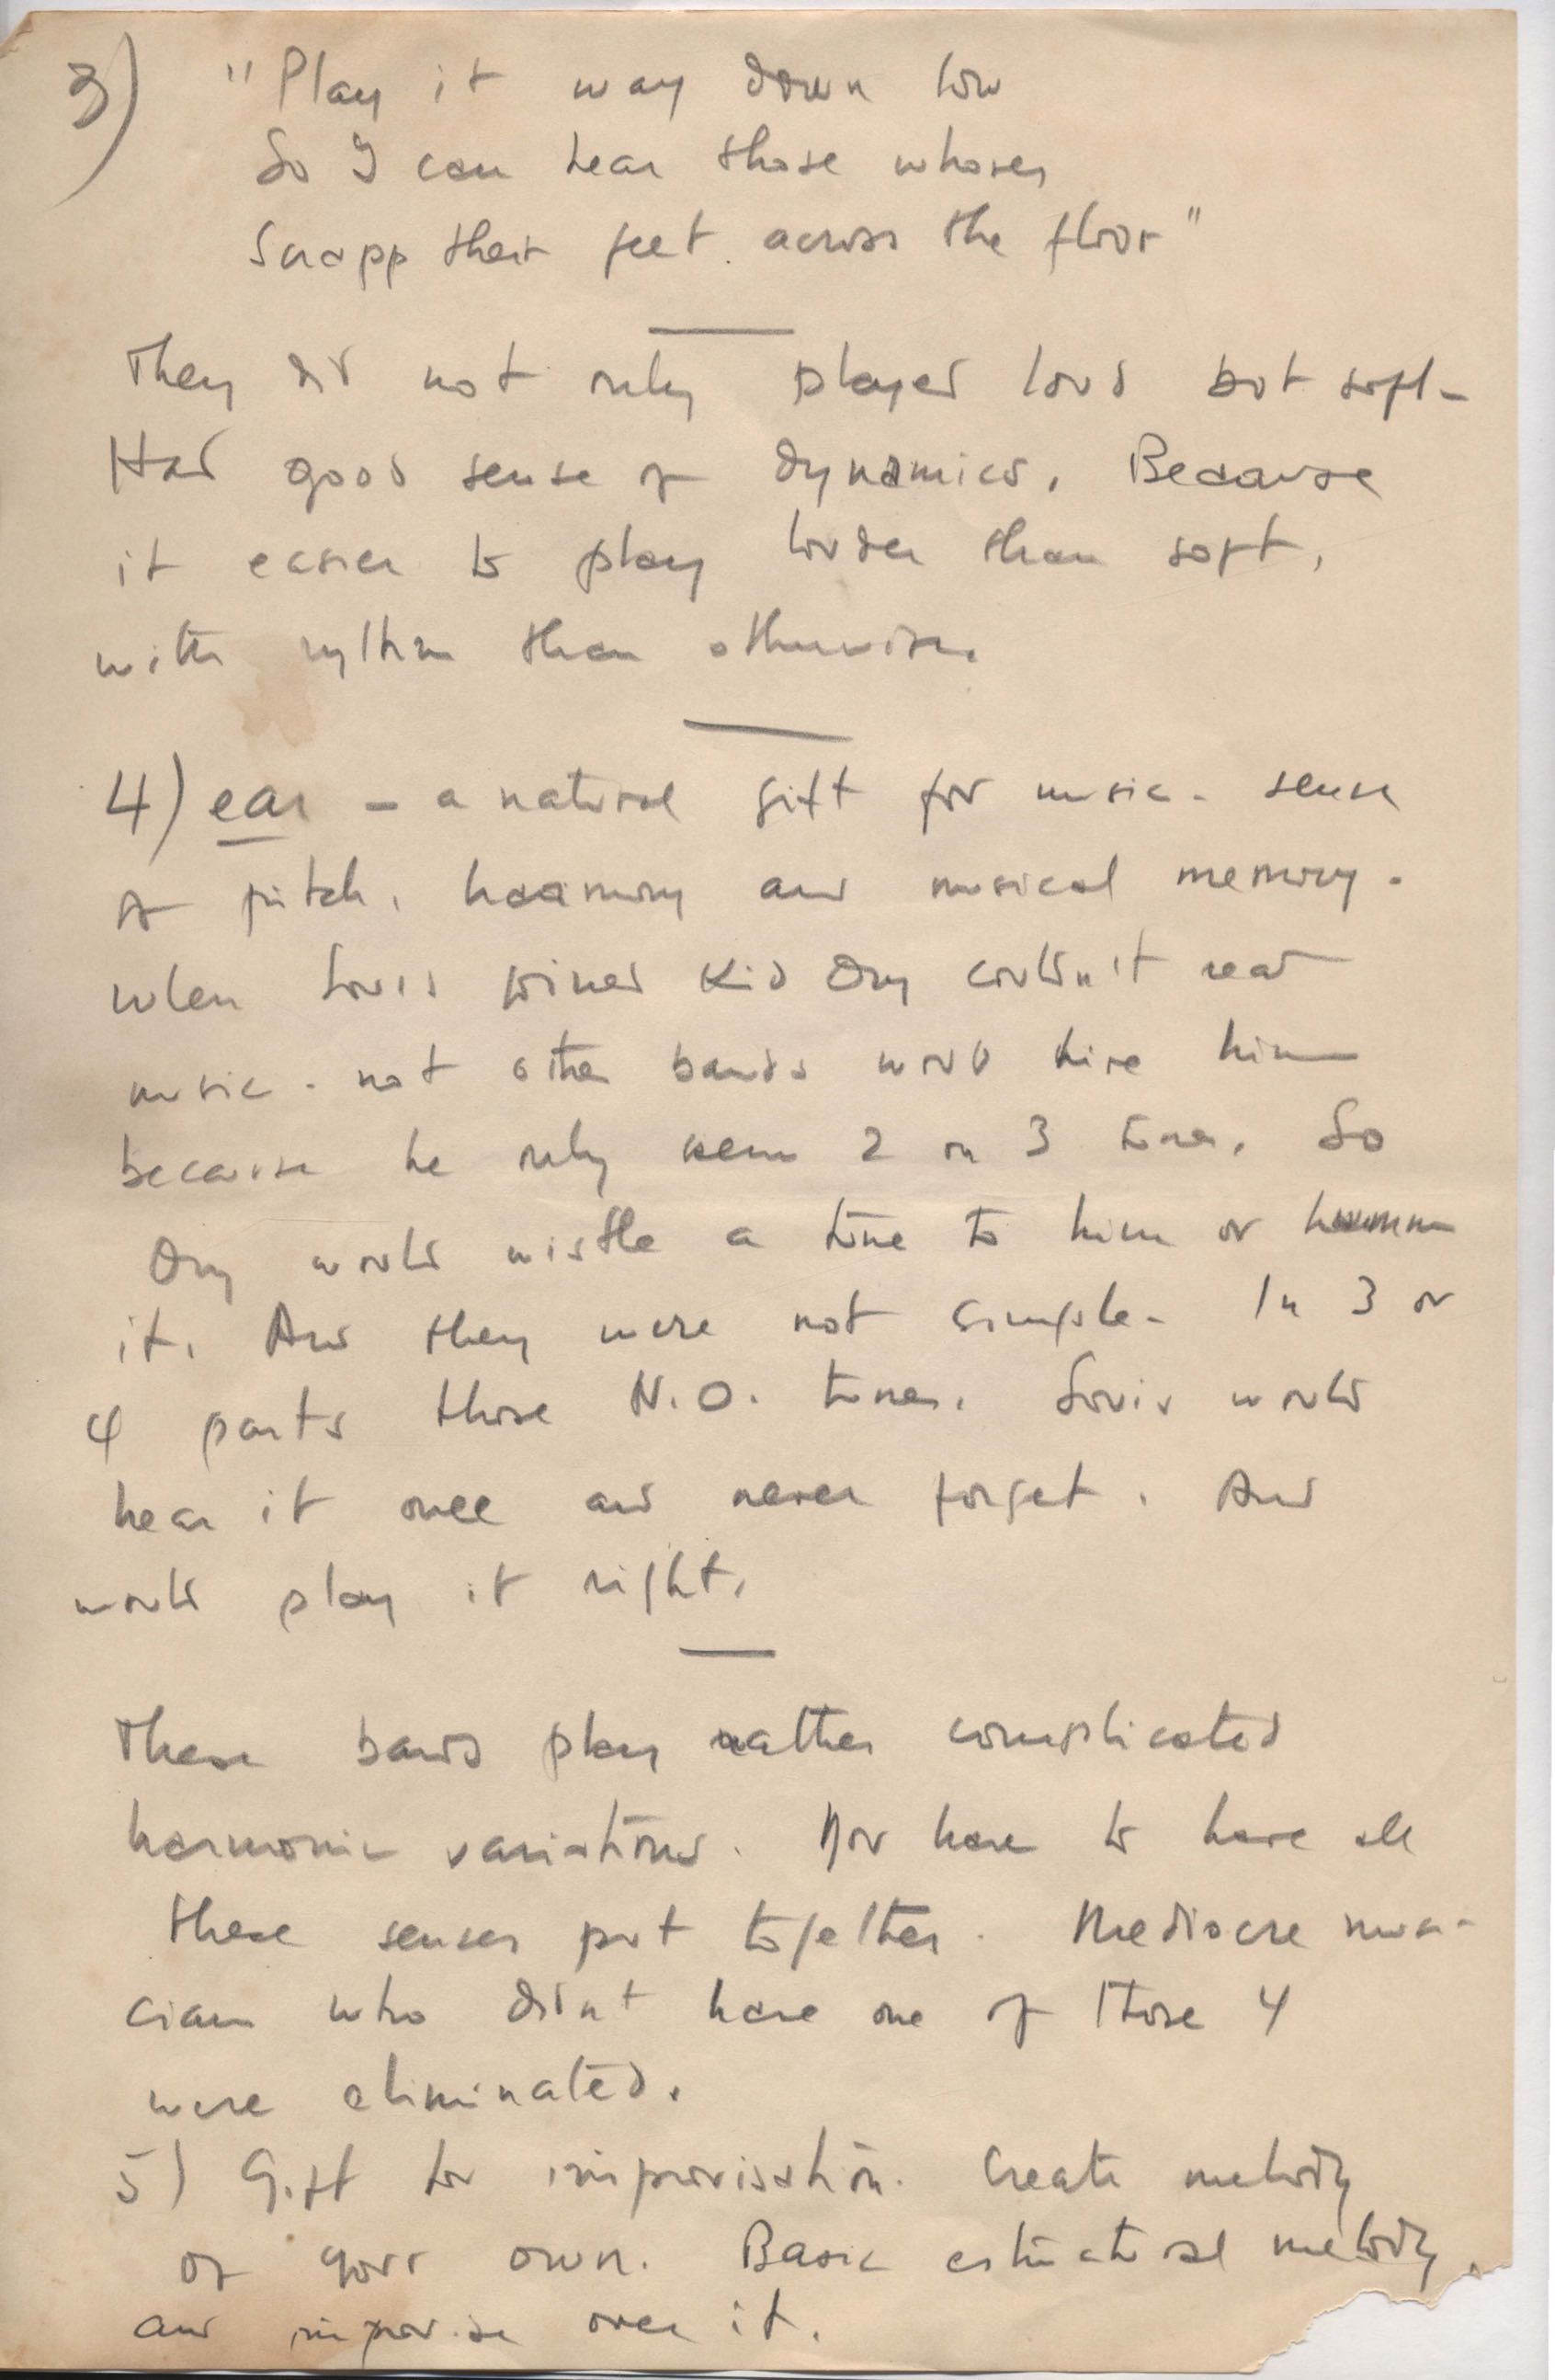 3) "Play it way down low
So I can hear those whores
Scrapp their feet across the floor"
They did not only played loud but soft -
Had good sense of dynamics. Because
it easier to play louder than soft,
with rythm than otherwise.
4) ear - a natural gift for music - sense
of pitch, haarmony and musical memory.
When Louis joined Kid Ory couldn't read
music - not other bands would hire him
because he only 2 or 3 tunes. So
Ory would wistle a tune to him or
it. And they were not simple - In 3 or
4 parts those N.O. tunes. Louis would
hear it once and never forget. And
would play it right.
These bands play rather complicated
harmonic variations. You have to have all
these senses put together. Mediocre musi-
cians who didnt have one of those 4
were eliminated.
5) Gift for improvisation. Create melody
of your own. Basic estructural melody,
and improvise over it.